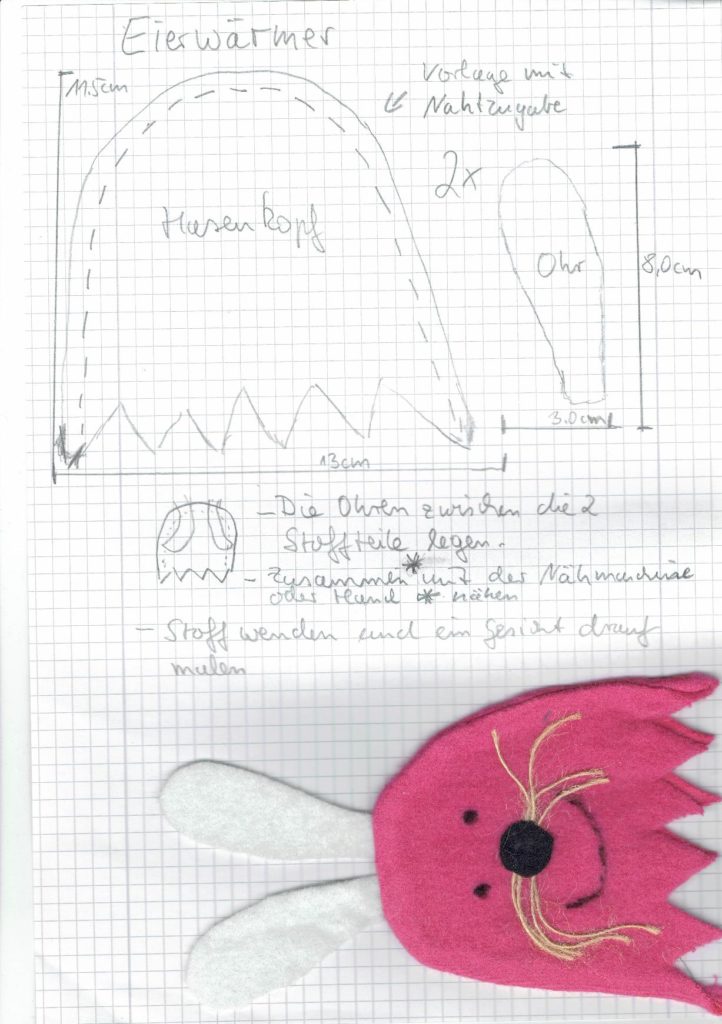 Eierwärmer
11.5cm
Vorlage mit
Nahtzugabe
2x
Hasenkopf
Ohr
8,0cm
3.0cm
13cm
- Die Ohren zwischen die 2
Stoffteile legen.
- Zusammen * mit der Nähmaschine
oder Hand * nähen
- Stoff wenden und ein Gesicht drauf
malen